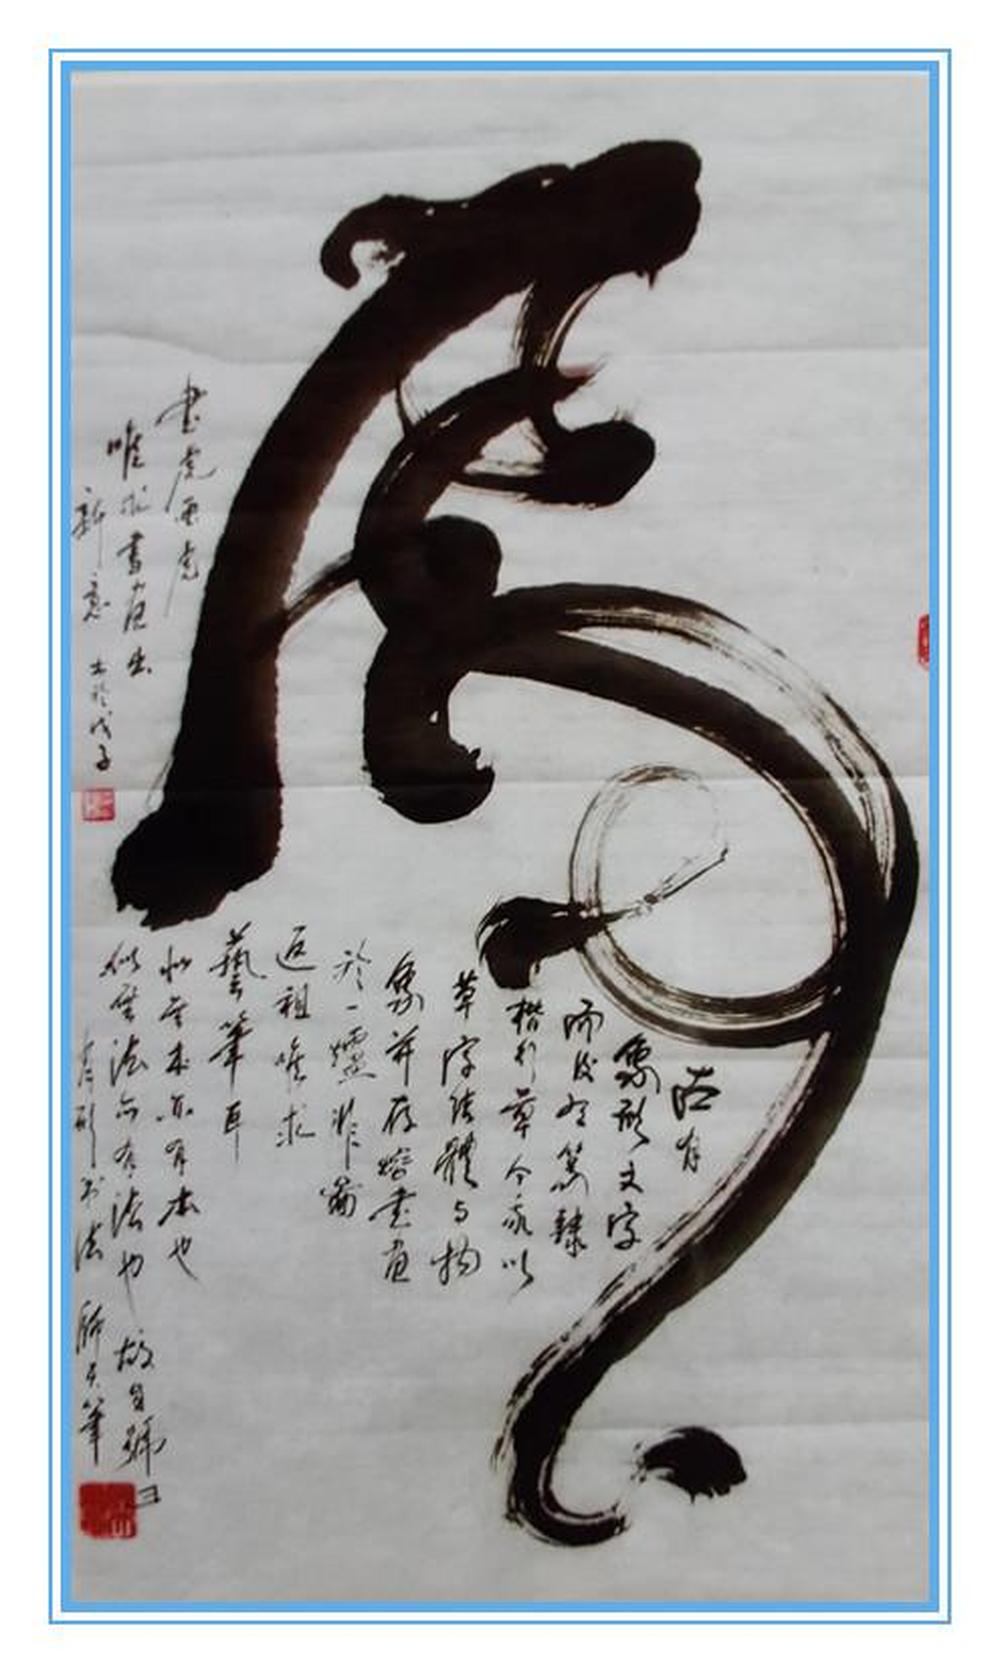 虎
古有
象形文字
而後有篆隸
楷行草今家以
草字結體与物
象并存熔書画
於一爐非篇
返祖唯求
藝筆耳
似無本亦有本也
似無法亦有法也 故自號曰
有形书法 師天筆
书虎画虎
唯求書画生
新意 戊子